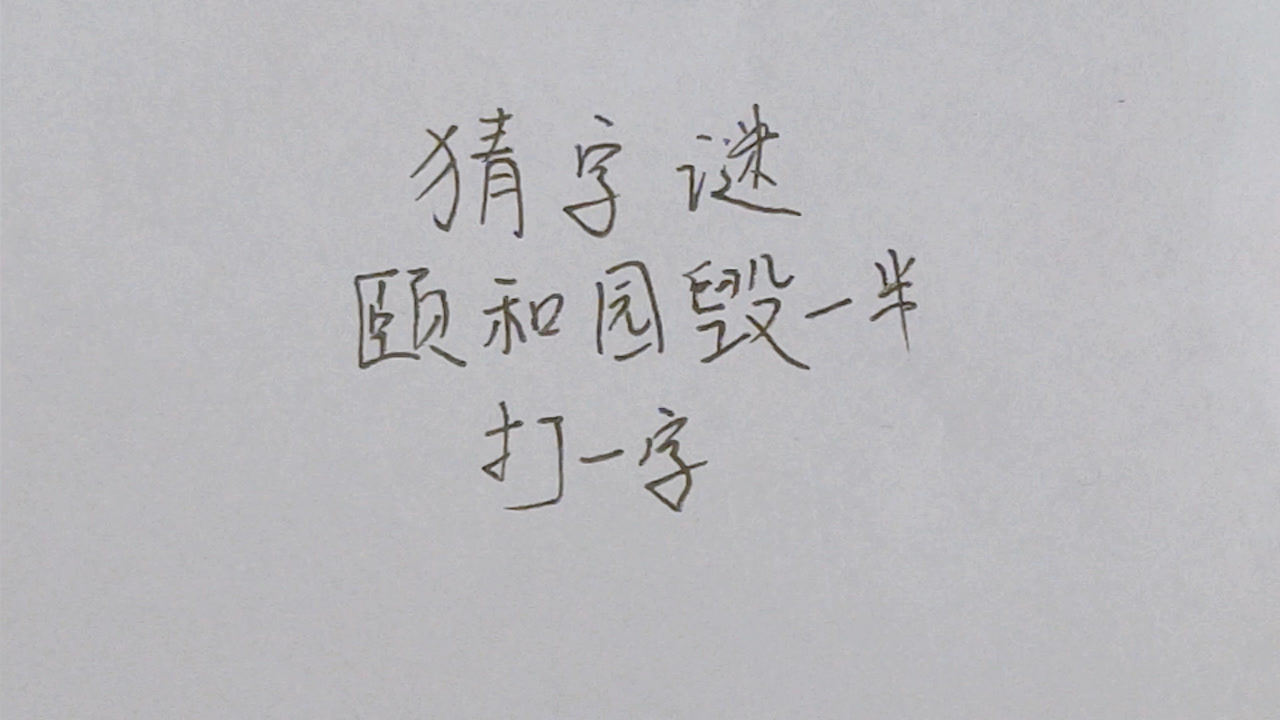 猜字谜
颐和园毁一半
打一字